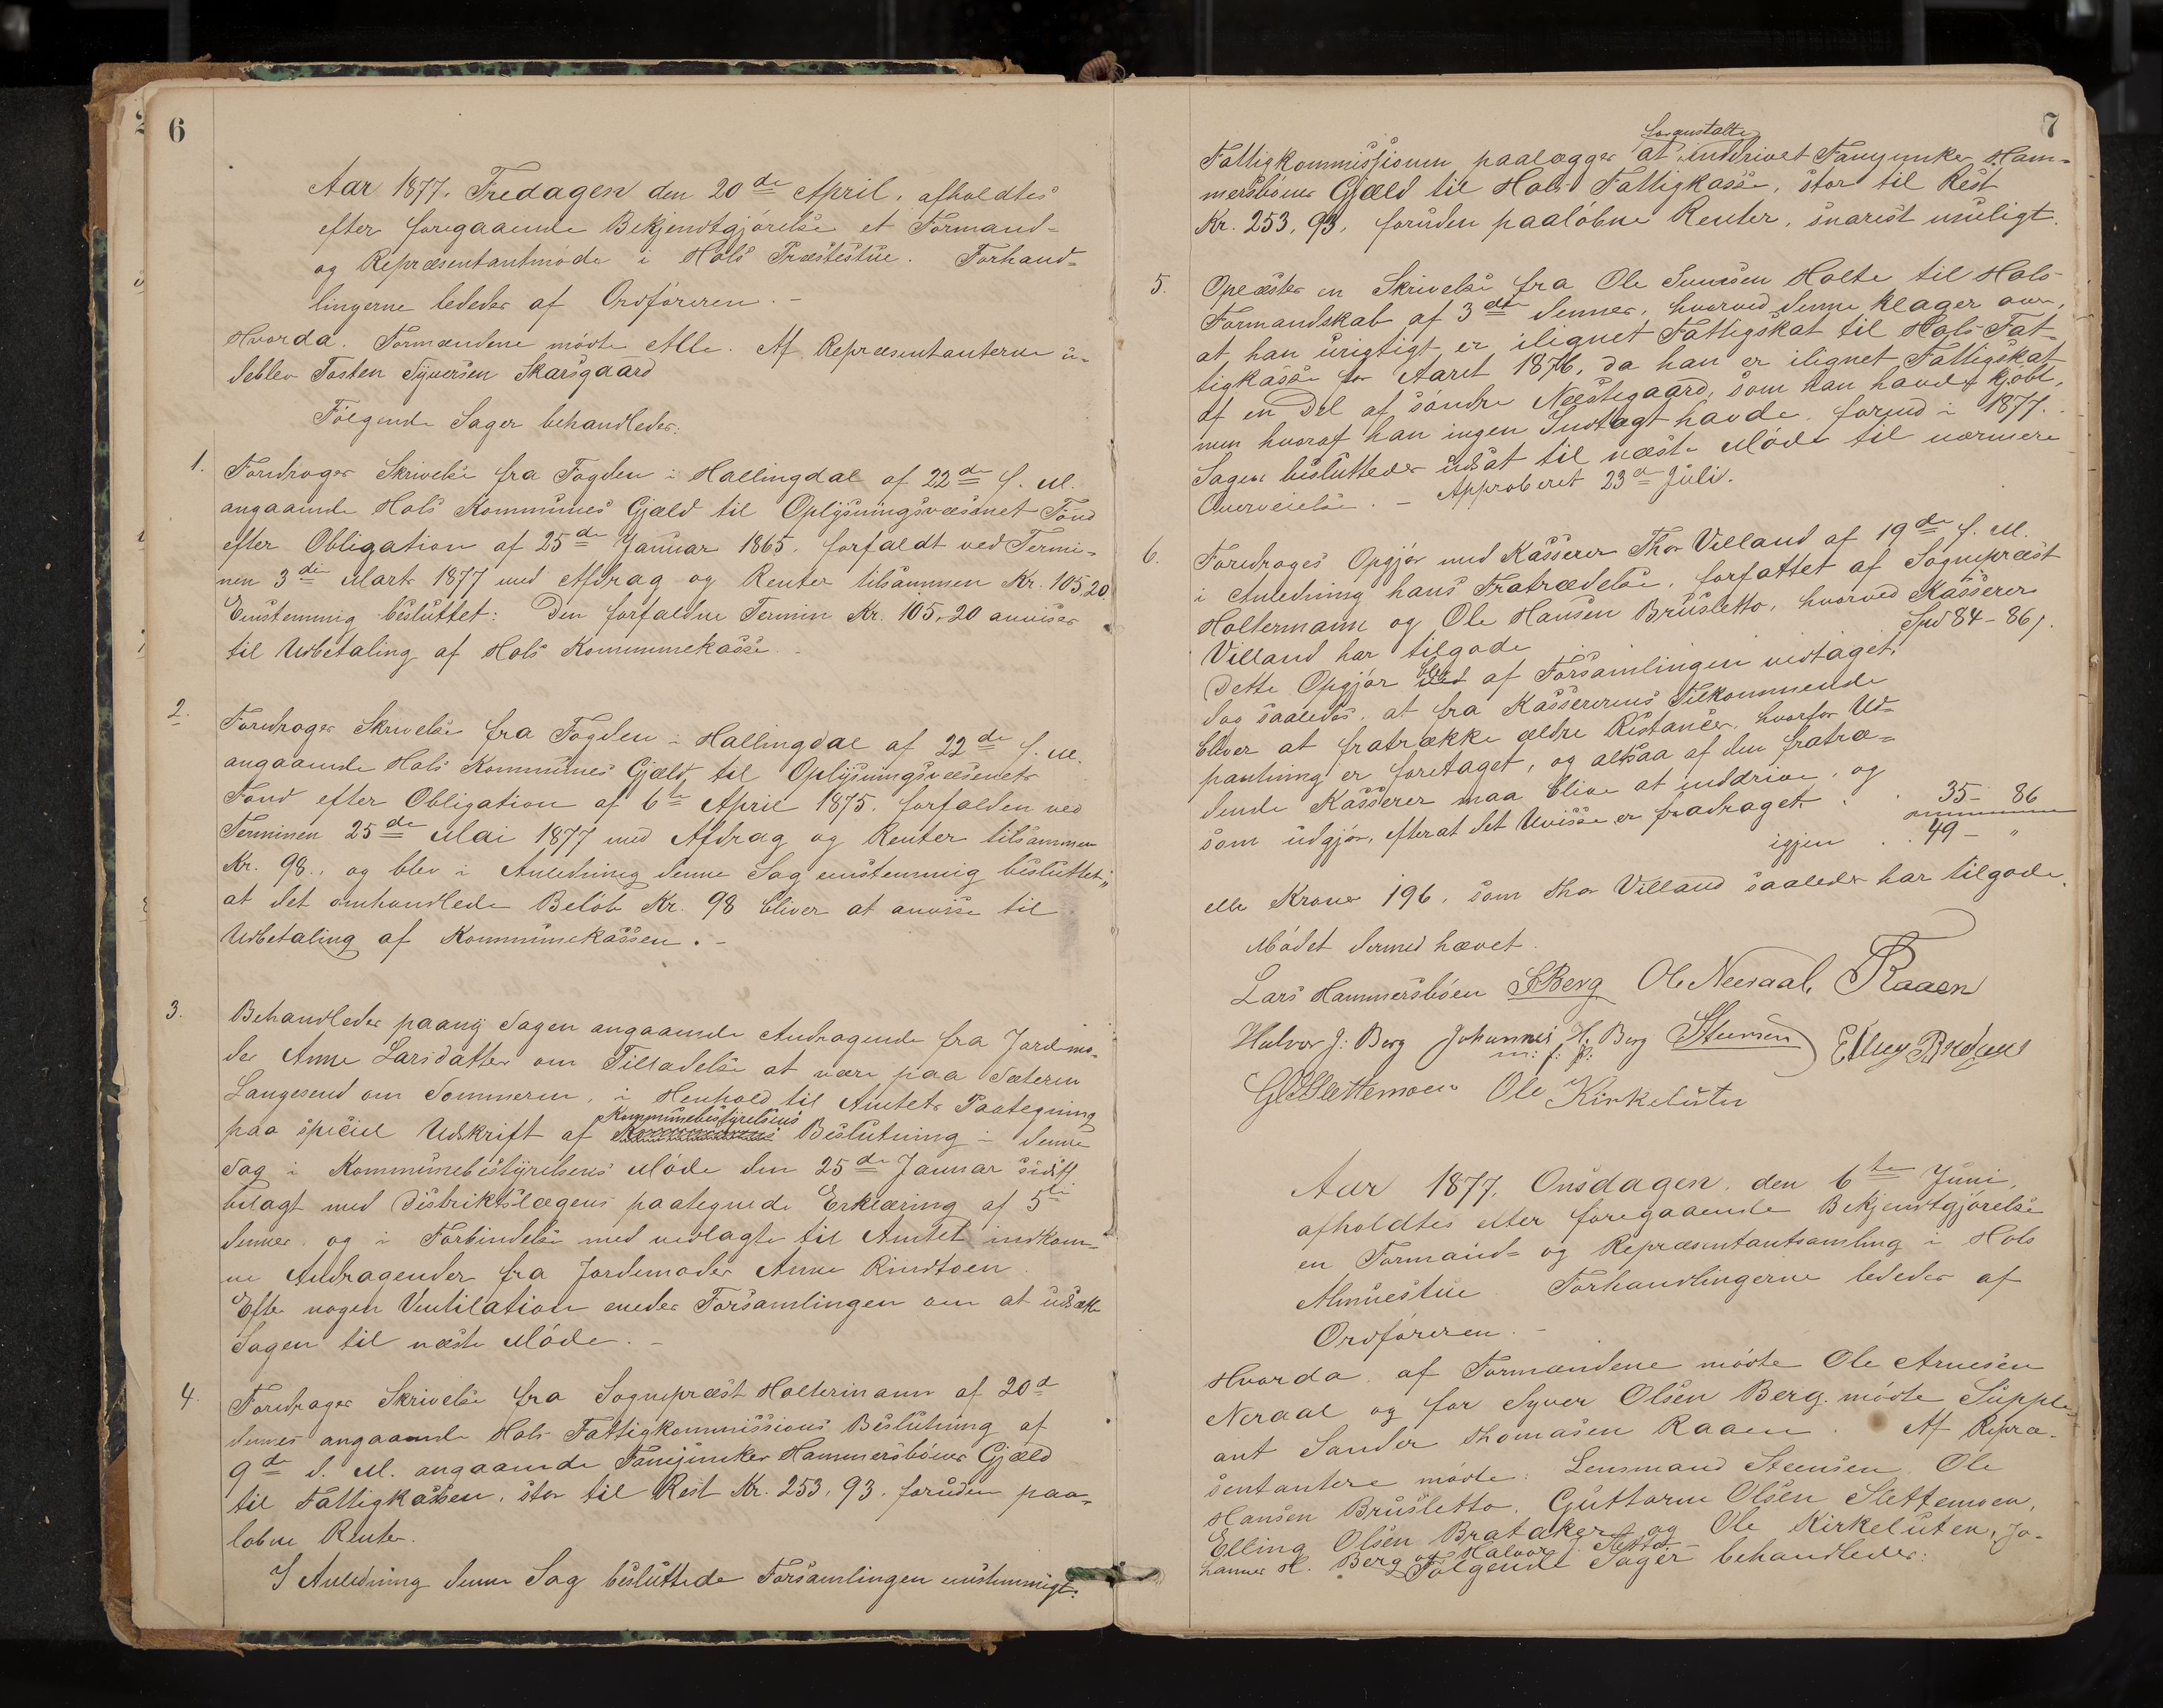 6
Aar 1877. Fredagen den 20de April, afholdtes
efter foregaaende Bekjendtgjørelse et Formand-
og Repræsentantmøde i Hols Præstestue. Forhand-
lingerne lededes af Ordføreren. -
Hvorda. Formændene mødte Alle. Af Repræsentanterne u-
deblev Tosten Syversen Skarsgaard
Følgende Sager behandledes:
1. Foredroges Skrivelse fra Fogden i Hallingdal af 22de f. M.
angaaende Hols Kommunes Gjæld til Oplysningsvæsenet Fond
efter Obligation af 25de Januar 1865, forfaldt ved Termi-
nen 3die Marts 1877 med Afdrag og Renter tilsammen Kr. 105,20
Enstemmig besluttet: Den forfaldne Termin Kr. 105,20 anvises
til Udbetaling af Hols Kommunekasse. -
2. Foredroges Skrivelse fra Fogden i Hallingdal af 22de f. M.
angaaende Hols Kommunes Gjæld til Oplysningsvæsenets
Fond efter Obligation af 6te April 1875, forfalden ved
Terminen 25de Mai 1877 med Afdrag og Renter tilsammen
Kr. 98., og blev i Anledning denne Sag enstemmig besluttet:
at det omhandlede Beløb Kr. 98 bliver at anvise til
Udbetaling af Kommunekassen. -
3. Behandledes paany Sagen angaaende Andragende fra Jordmo-
der Anne Larsdatter om Tilladelse at være paa Sæteren
Langesend om Sommeren, i Henhold til Amtets Paategning
paa speciel Udskrift af Kommunebestyrelsens Beslutning i denne
Sag i Kommunebestyrelsens Møde den 25de Januar sidstl
belagt med Distriktslægens paategnede Erklæring af 5te
dennes, og i Forbindelse med vedlagte til Amtet indkom-
ne Andragender fra Jordemoder Anne Rindtoen.
Efter nogen Ventilation enedes Forsamlingen om at udsætte
Sagen til næste Møde. -
4. Foredroges Skrivelse fra Sognepræst Holtermann af 20d
dennes angaaende Hols Fattigkommissions Beslutning af
9de d. M. angaaende Fanejunker Hammersbøens Gjæld
til Fattigkassen, stor til Rest Kr. 253,93. foruden paa-
løbne Renter.
I Anledning denne Sag besluttede Forsamlingen enstemmigt:
7
foranstalte
Fattigkommissionen paalægges at inddrivet Fanejunker Ham-
mersbøens Gjæld til Hols Fattigkasse, stor til Rest
Kr. 253,93, foruden paaløbne Renter, snarest muligt.
5. Oplæstes en Skrivelse fra Ole Svensen Holte til Hols
Formandskab af 3die dennes, hvorved denne klager over,
at han urigtigt er ilignet Fattigskat til Hols Fat-
tigkasse for Aaret 1876, da han er ilignet Fattigskat
af en Del af søndre Næstegaard, som han havde kjøbt,
men hvoraf han ingen Indtægt havde, førend i 1877.
Sagen besluttedes udsat til næste Møde til nærmere
Overveielse. - Approberet 23d Juli.
6. Foredroges Opgjør med Kasserer Thor Villand af 19de f. M.
i Anledning hans Fratrædelse, forfattet af Sognepræst
Holtermann og Ole Hansen Brusletto, hvorved Kasserer
Villand har tilgode Spd 84 - 86 /.
Dette Opgjør blev af Forsamlingen vedtaget,
dog saaledes, at fra Kassererens Tilkommende
bliver at fratrække ældre Restancer, hvorfor Ud-
pantning er foretaget, og altsaa af den fratræ-
dende Kasserer maa blive at inddrive, og
som udgjør, efterat det Uvisse er fradraget . . 35 - 86
igjen . . 49 - "
elle Kroner 196, som Thor Villand saaledes har tilgode.
Mødet dermed hævet.
Lars Hammersbøen SBerg Ole Neeraal, TRaaen
Halvor J: Berg Johannes H. Berg Steensen Elling Bra
m: f: p:
G Slettemoen Ole Kirkeluten
Aar 1877, Onsdagen den 6te Juni,
afholdtes efter foregaaende Bekjendtgjørelse
en Formand- og Repræsentantsamling i Hols
Almuestue. Forhandlingerne lededes af
Ordføreren. -
Hvorda af Formændene mødte Ole Arnesen
Neraal og for Syver Olsen Berg mødte Supple-
ant Sander Thomasen Raaen. Af Repræ-
sentantere mødte: Lensmand Steensen, Ole
Hansen Brusletto, Guttorm Olsen Slettemoen,
Elling Olsen Brataker og Ole Kirkeluten, Jo-
hannes H. Berg og Halvor J.
Følgende Sager behandledes: